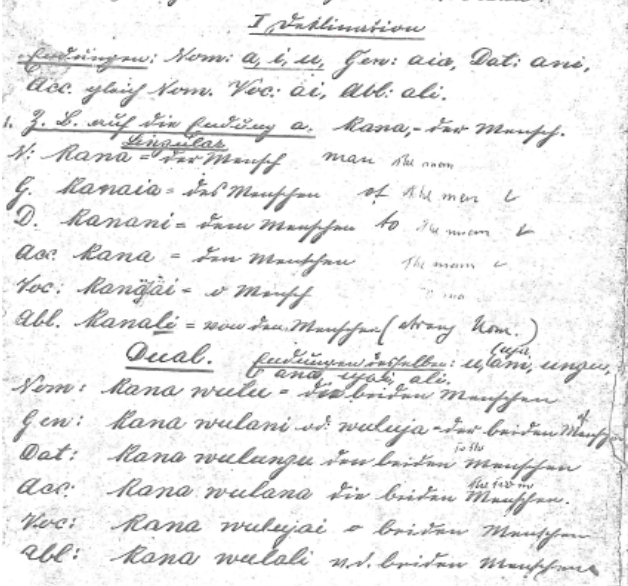 I Deklination
Endungen: Nom: a, i, u, Gen: aia, Dat: ani,
Acc. gleich Nom. Voc: ai, Abl: ali.
1. Z. B. auf die Endung a. Kana, - der Mensch.
Singular
N: Kana = der Mensch man the man
G. Kanaia = des Menschen of the man
D. Kanani = dem Menschen to the man
Acc. Kana = den Menschen the man
Voc: = o Mensch
Abl. Kanali = von dem Menschen ( Nom.)
Dual. Endungen desselben: u, ani, ungu,
ana, ujai, ali.
Nom: Kana wulu = die beiden Menschen
Gen: Kana wulani od. wuluja = der beiden Mensch
Dat: Kana wulungu den beiden Menschen
Acc: Kana wulana die beiden Menschen.
Voc: Kana wulujai o beiden Menschen
Abl: Kana wulali v.d. beiden Menschen